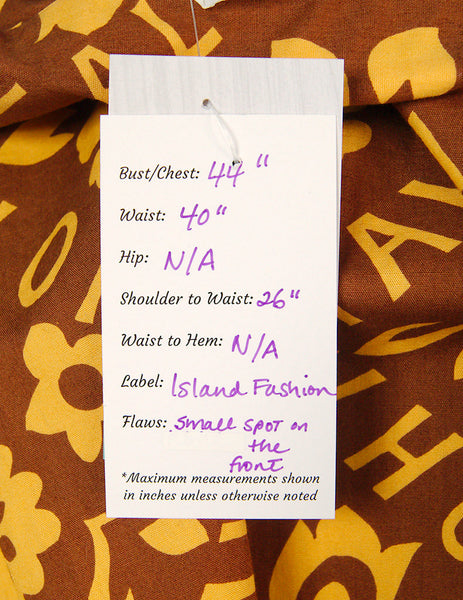 Bust/Chest: 44"
Waist: 40"
Hip: N/A
Shoulder to Waist: 26"
Waist to Hem: N/A
Label: Island Fashion
Flaws: small spot on
the
front
*Maximum measurements shown
in inches unless otherwise noted